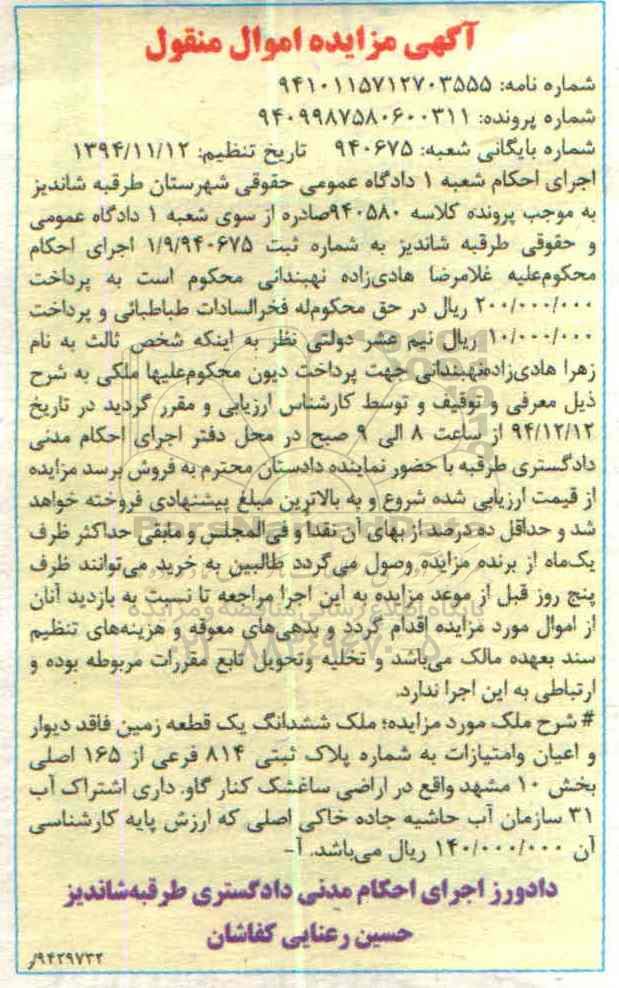 آگهی مزایده اموال منقول
شماره نامه: ۹۴۱۰۱۱۵۷۱۲۷۰۳۵۵۵
شماره پرونده: ۹۴۰۹۹۸۷۵۸۰۶۰۰۳۱۱
شماره بایگانی شعبه: ۹۴۰۶۷۵ تاریخ تنظیم: ۱۳۹۴/۱۱/۱۲
اجرای احکام شعبه ۱ دادگاه عمومی حقوقی شهرستان طرقبه شاندیز
به موجب پرونده کلاسه ۹۴۰۵۸۰صادره از سوی شعبه ۱ دادگاه عمومی
و حقوقی طرقبه شاندیز به شماره ثبت ۱/۹/۹۴۰۶۷۵ اجرای احکام
محکوم‌علیه غلامرضا هادی‌زاده نهبندانی محکوم است به پرداخت
۲۰۰/۰۰۰/۰۰۰ ریال در حق محکوم‌له فخرالسادات طباطبائی و پرداخت
۱۰/۰۰۰/۰۰۰ ریال نیم عشر دولتی نظر به اینکه شخص ثالث به نام
زهرا هادی‌زاده‌نهبندانی جهت پرداخت دیون محکوم‌علیها ملکی به شرح
ذیل معرفی و توقیف و توسط کارشناس ارزیابی و مقرر گردید در تاریخ
۹۴/۱۲/۱۲ از ساعت ۸ الی ۹ صبح در محل دفتر اجرای احکام مدنی
دادگستری طرقبه با حضور نماینده دادستان محترم به فروش برسد مزایده
از قیمت ارزیابی شده شروع و به بالاترین مبلغ پیشنهادی فروخته خواهد
شد و حداقل ده درصد از بهای آن نقداً و فی‌المجلس و مابقی حداکثر ظرف
یک‌ماه از برنده مزایده وصول می‌گردد طالبین به خرید می‌توانند ظرف
پنج روز قبل از موعد مزایده به این اجرا مراجعه تا نسبت به بازدید آنان
از اموال مورد مزایده اقدام گردد و بدهی‌های معوقه و هزینه‌های تنظیم
سند بعهده مالک می‌باشد و تخلیه وتحویل تابع مقررات مربوطه بوده و
ارتباطی به این اجرا ندارد.
# شرح ملک مورد مزایده؛ ملک ششدانگ یک قطعه زمین فاقد دیوار
و اعیان وامتیازات به شماره پلاک ثبتی ۸۱۴ فرعی از ۱۶۵ اصلی
بخش ۱۰ مشهد واقع در اراضی ساغشک کنار گاو. داری اشتراک آب
۳۱ سازمان آب حاشیه جاده خاکی اصلی که ارزش پایه کارشناسی
آن ۱۴۰/۰۰۰/۰۰۰ ریال می‌باشد. آ-
دادورز اجرای احکام مدنی دادگستری طرقبه‌شاندیز
حسین رعنایی کفاشان
۹۴۲۹۷۳۲/ر